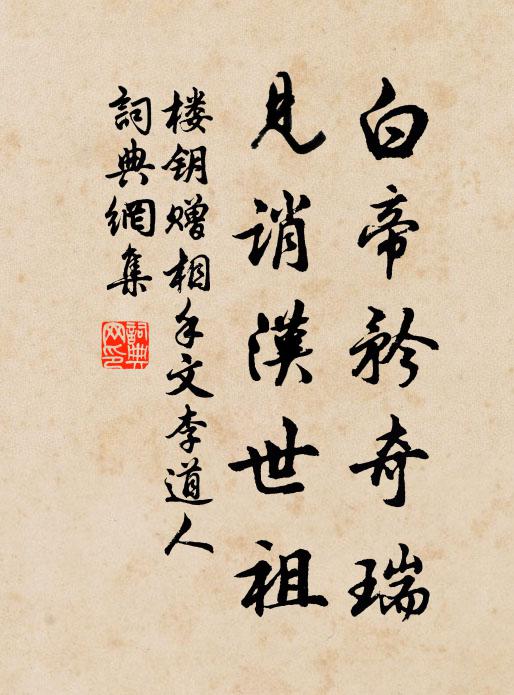 白帝矜奇瑞
見誚漢世祖
楼钥赠相手文李道人
詞典網集
詞典網印